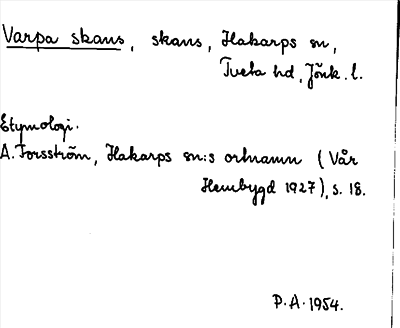 Varpa skans, skans, Hakarps sn,
Tveta hd, Jönk. l.
Etymologi.
A. Forsström, Hakarps sn:s ortnamn (Vår
Hembygd 1927), s. 18.
P.A. 1954.